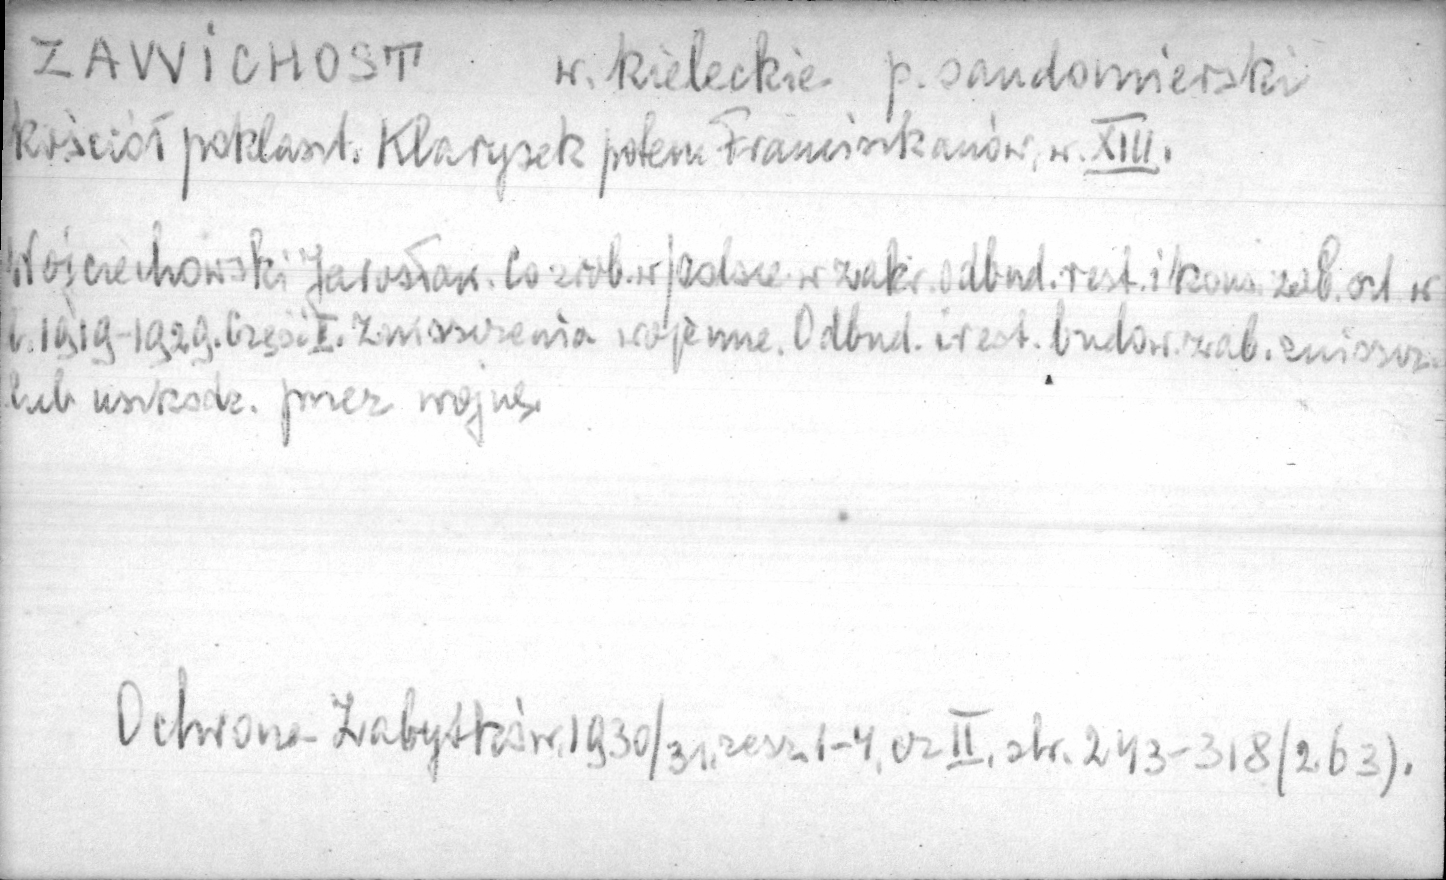 ZAWICHOST w. kieleckie p. sandomierski
kościół poklaszt. Klarysek potem Franciszkanów, w. XIII.
Wojciechowski Jarosław. Co zrob. w Polsce w zakr. odbud. rest. i kons. zab. od w
l. 1919-1929. Część I. Zniszczenia wojenne. Odbud. i rest. budow. zab. zniszcz.
lub uszkodz. przez wojnę.
Ochrona Zabytków. 1930/31, zesz. 1-4, cz II, str. 243-318 (263).